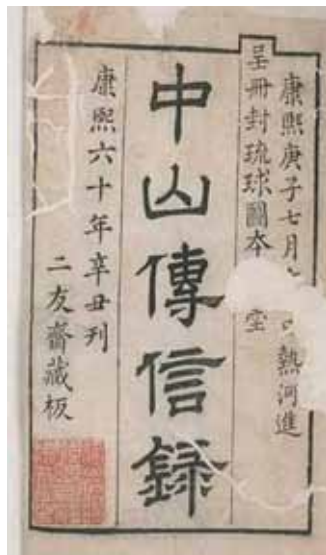 康熙庚子七月
熱河進
呈册封琉球圖本
中山傳信錄
康熙六十年辛丑刊
二友齋藏板